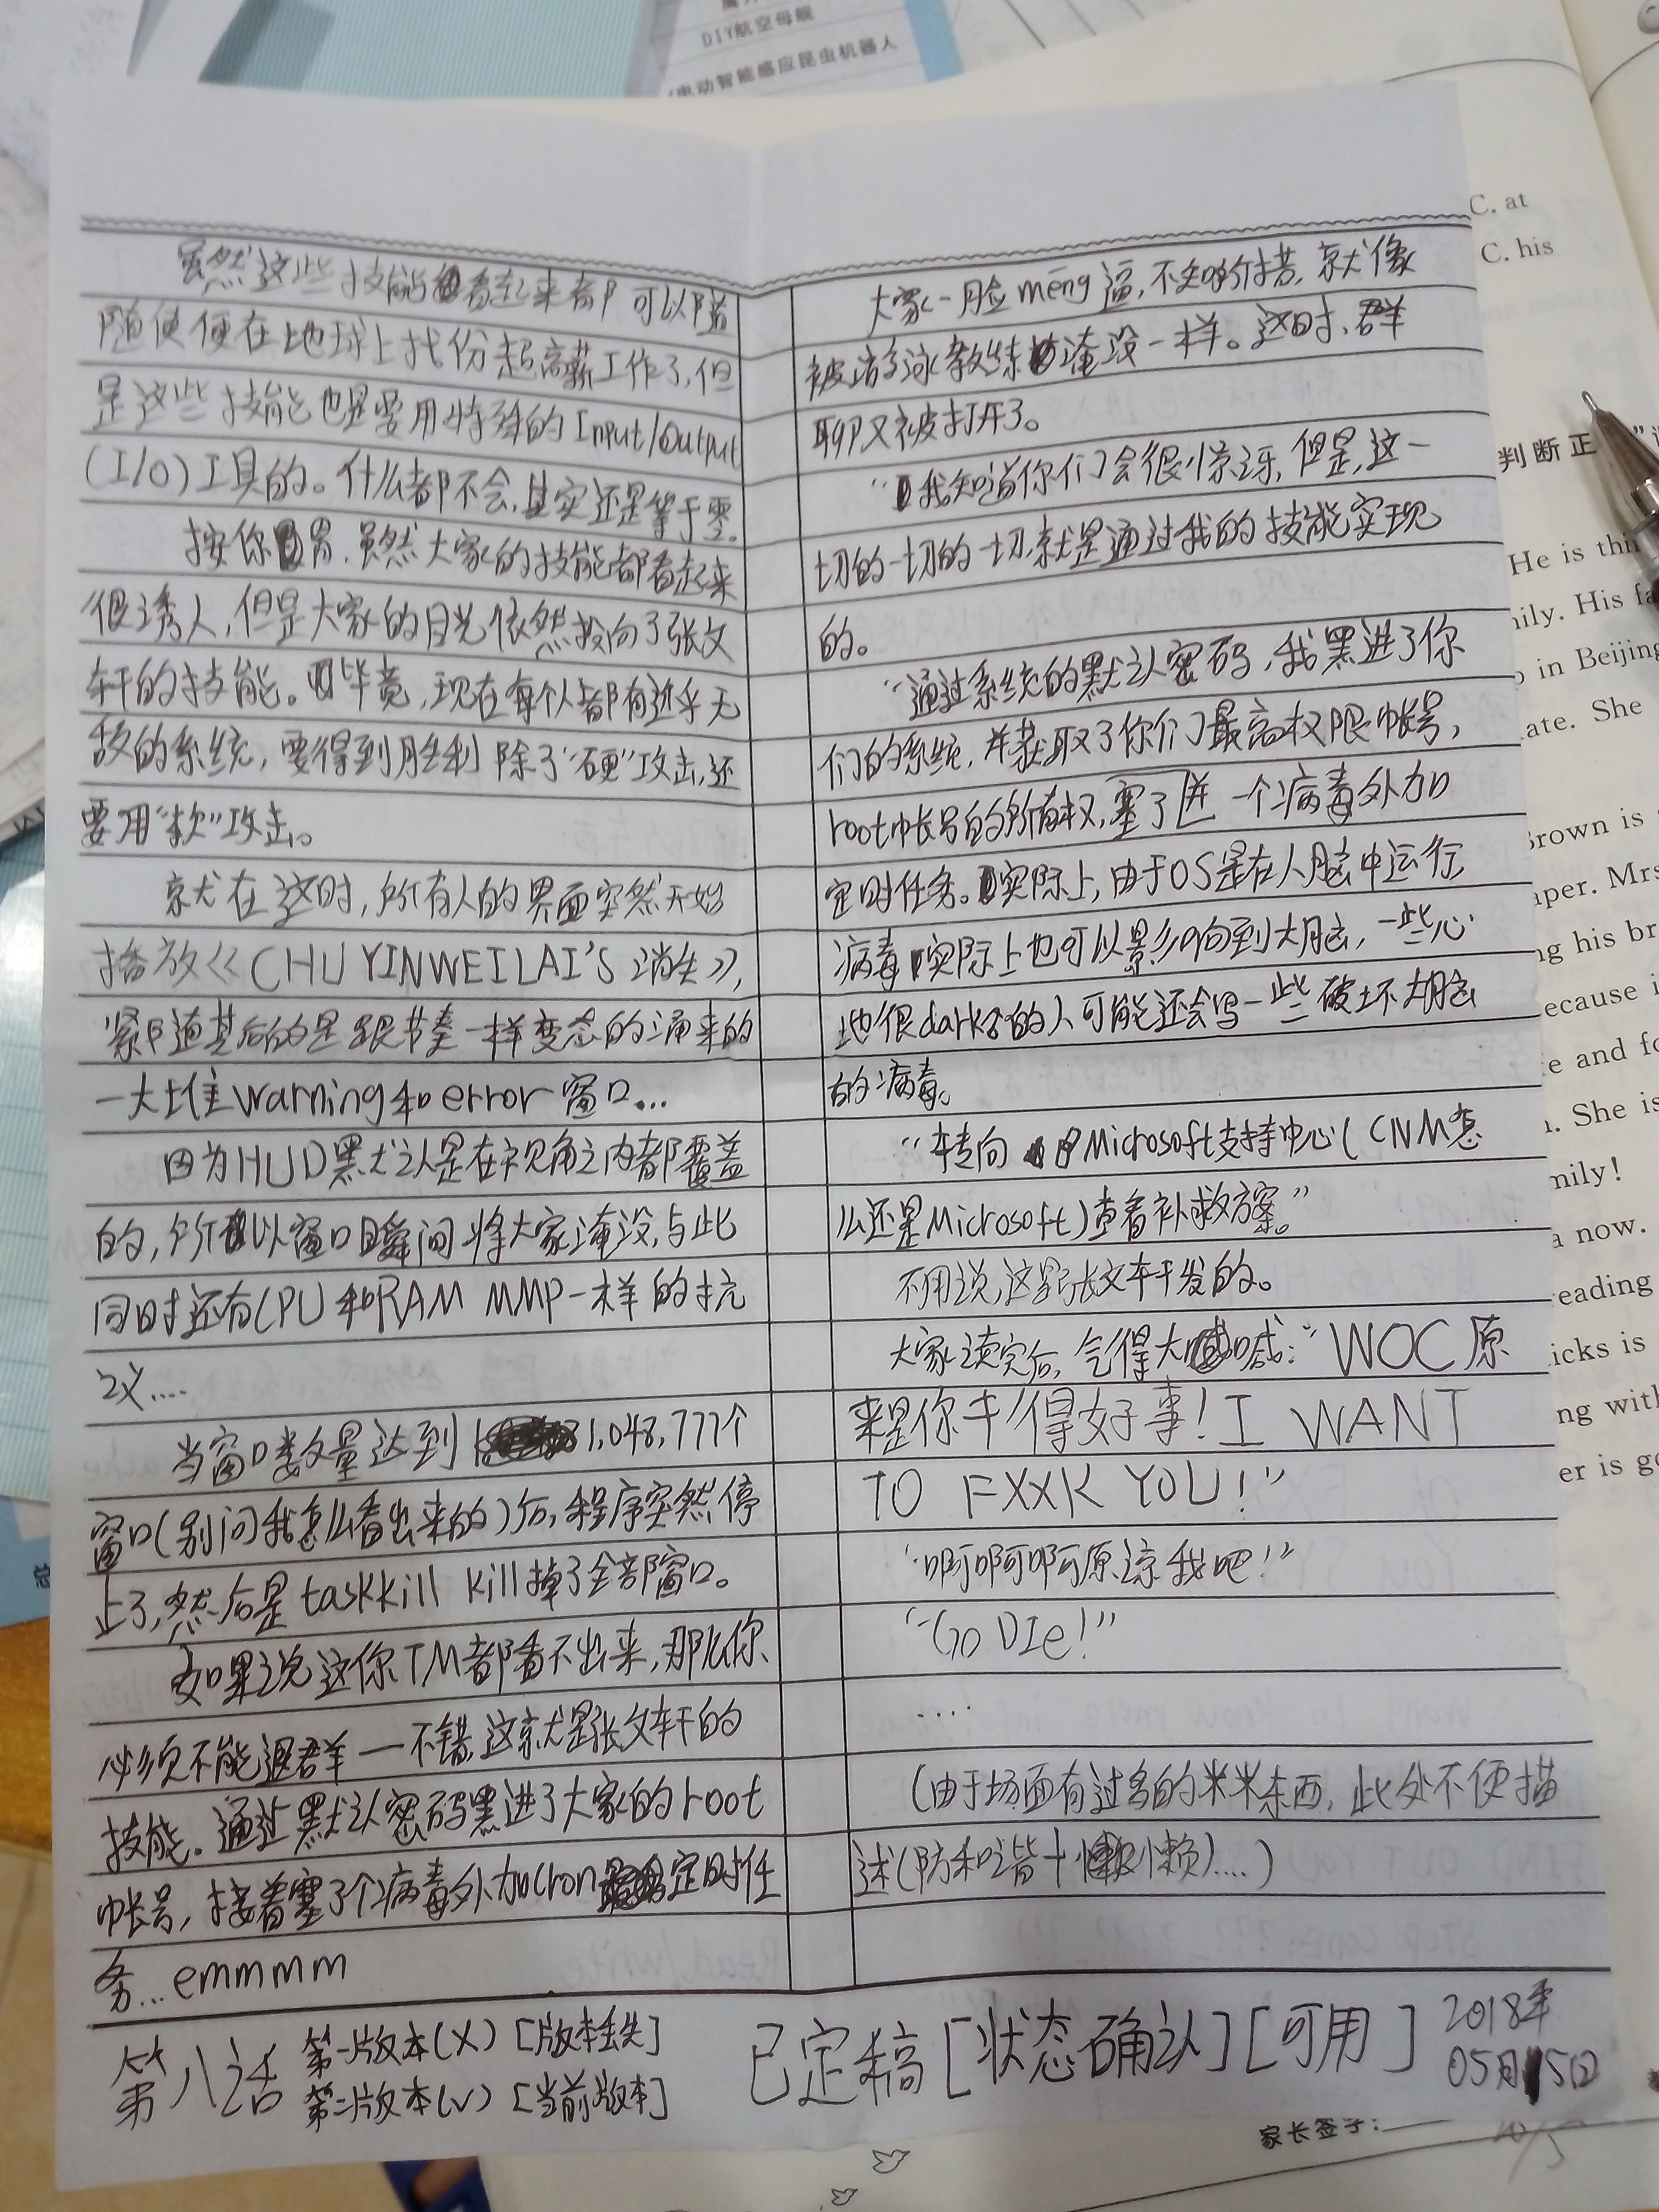 DIY航空母舰
电动智能感应昆虫机器人
虽然这些技能看起来都可以随
随便便在地球上找份超高薪工作了,但
是这些技能也是要用特殊的Input/Output
(I/O)工具的。什么都不会,其实还是等于零。
按你胃,虽然大家的技能都看起来
很诱人,但是大家的目光依然投向了张文
轩的技能。毕竟,现在每个人都有近乎无
敌的系统,要得到胜利除了“硬”攻击,还
要用“软”攻击。
就在这时,所有人的界面突然开始
播放《CHUYINWEILAI'S 消失》,
紧随其后的是跟节奏一样变态的涌来的
一大堆warning和error窗口...
因为HUD默认是在视角之内都覆盖
的,所以窗口瞬间将大家淹没,与此
同时还有CPU和RAM MMP一样的抗
议....
当窗口数量达到1,048,777个
窗口(别问我怎么看出来的)后,程序突然停
止了,然后是taskkill kill掉了全部窗口。
如果说这你TM都看不出来,那么你
必须不能退群——不错,这就是张文轩的
技能。通过默认密码黑进了大家的root
帐号,接着塞了个病毒外加cron定时任
务...emmmm
大家一脸mēng逼,不知所措,就像
被游泳教练淹没一样。这时,群
聊又被打开了。
“我知道你们会很惊讶,但是,这一
切的一切的一切,就是通过我的技能实现
的。
“通过系统的默认密码,我黑进了你
们的系统,并获取了你们最高权限帐号,
root帐号的所有权,塞了进一个病毒外加
定时任务。实际上,由于OS是在人脑中运行,
病毒实际上也可以影响到大脑,一些心
地很dark的人可能还会写一些破坏大脑
的病毒。
“转向Microsoft支持中心(CNM怎
么还是Microsoft)查看补救方案。”
不用说,这是张文轩发的。
大家读完后,气得大喊:“WOC原
来是你干得好事!I WANT
TO FXXK YOU!”
“啊啊啊原谅我吧!”
“Go DIe!”
....
(由于场面有过多的米米东西,此处不便描
述(防和谐+懒)....)
第八话 第一版本(X) [版本丢失]
第二版本(√) [当前版本]
已定稿[状态确认][可用]
2018年
05月15日
C. at
C. his
判断正
He is thi
mily. His fa
in Beijing
ate. She
Brown is
aper. Mrs
ng his br
ecause i
e and fo
n. She is
mily!
a now.
eading
icks is
ng with
er is go
家长签字: